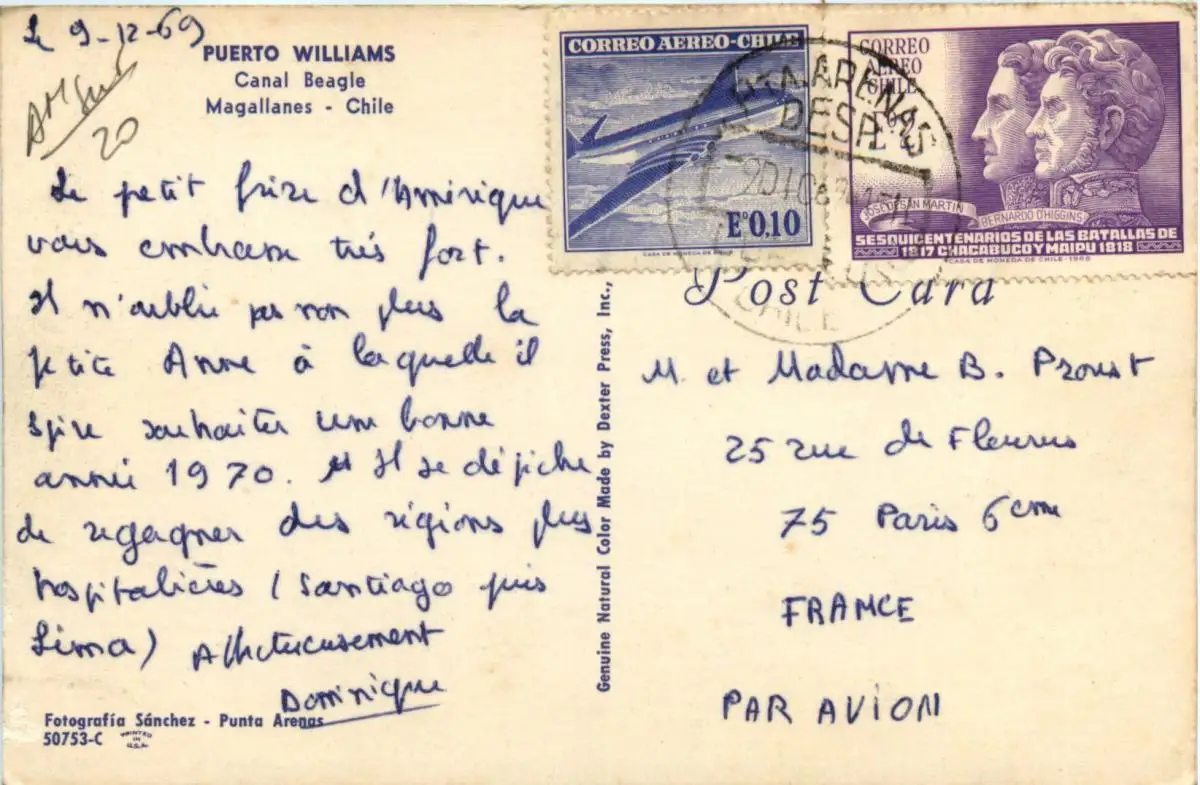 Le 9-12-69
PUERTO WILLIAMS
Canal Beagle
Magallanes - Chile
20
Le petit frère d'Amérique
vous embrasse très fort.
Il n'oublie pas non plus la
petite Anne à laquelle il
souhaiter une bonne
année 1970. Il se dépêche
de regagner des régions plus
hospitalières (Santiago puis
Lima) Affectueusement
Dominique
Fotografía Sánchez - Punta Arenas
50753-C
PRINTED IN U.S.A.
Genuine Natural Color Made by Dexter Press, Inc.,
CORREO AEREO-CHILE
Eº0.10
CASA DE MONEDA DE CHILE
CORREO
AEREO
CHILE
JOSE DE SAN MARTIN
BERNARDO O'HIGGINS
SESQUICENTENARIOS DE LAS BATALLAS DE
1817 CHACABUCO Y MAIPU 1818
CASA DE MONEDA DE CHILE-1968
PTA.ARENAS
DESP.
CHILE
Post Card
M. et Madame B. Proust
25 rue de Fleurus
75 Paris 6eme
FRANCE
PAR AVION